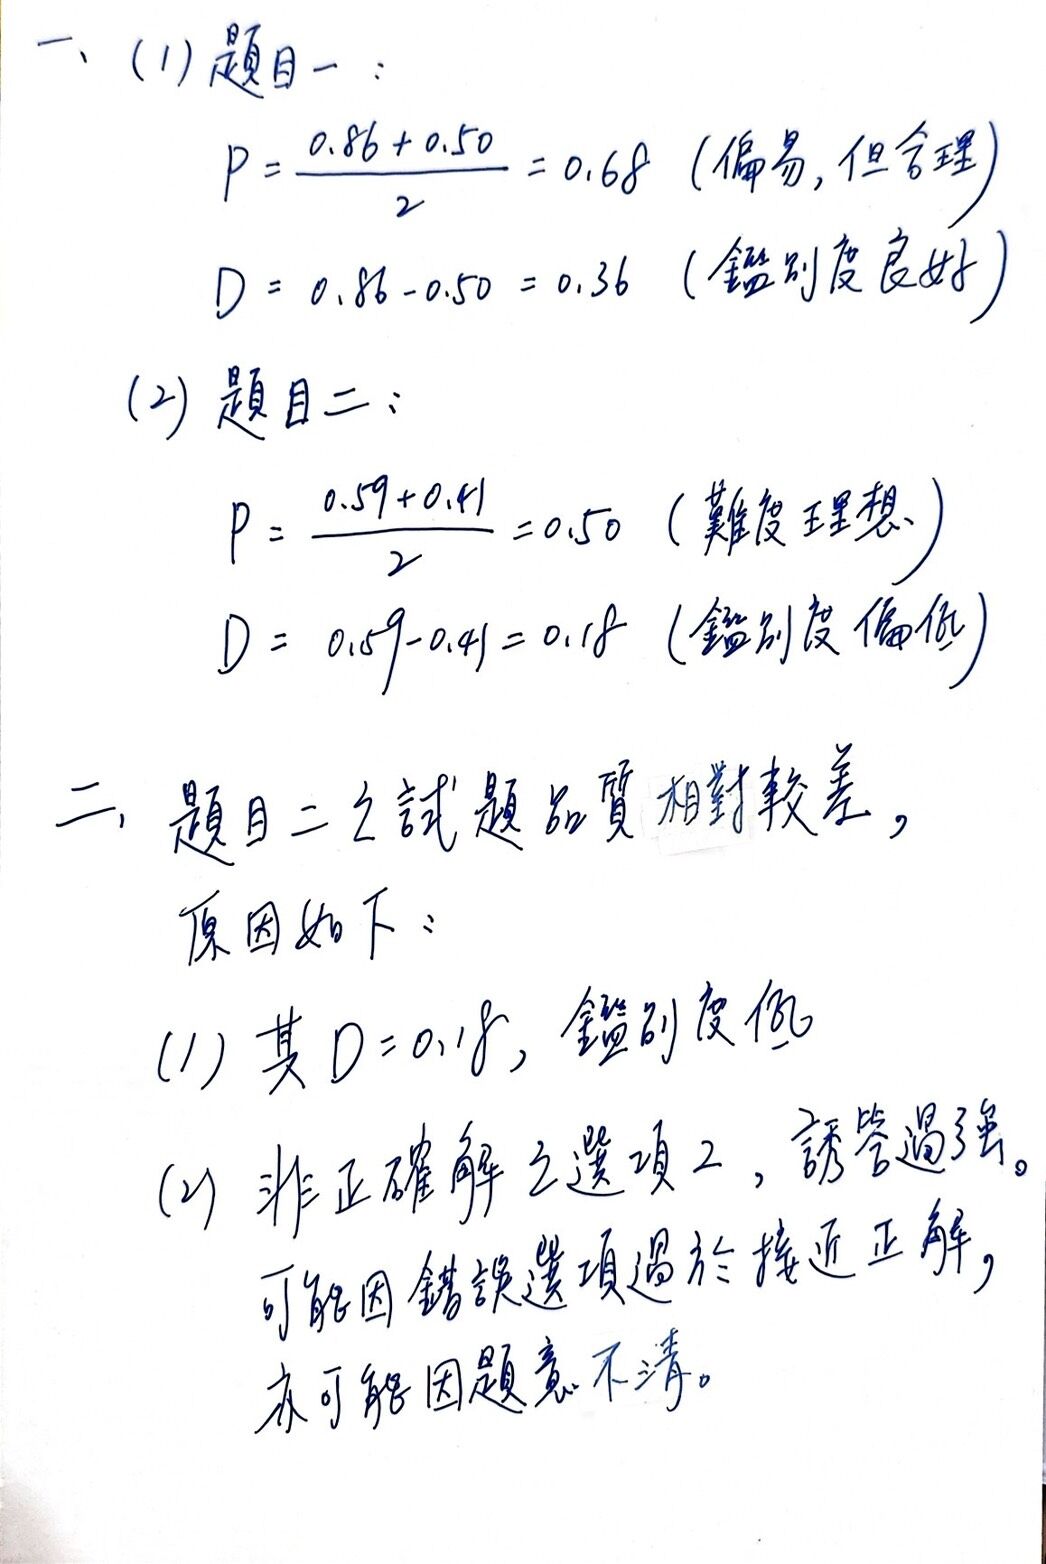 一、(1) 題目一：
P = (0.86 + 0.50) / 2 = 0.68 (偏易, 但合理)
D = 0.86 - 0.50 = 0.36 (鑑別度良好)
(2) 題目二：
P = (0.59 + 0.41) / 2 = 0.50 (難度理想)
D = 0.59 - 0.41 = 0.18 (鑑別度偏低)
二、題目二之試題品質相對較差，
原因如下：
(1) 其 D = 0.18, 鑑別度低
(2) 非正確解之選項2，誘答過強。
可能因錯誤選項過於接近正解，
亦可能因題意不清。